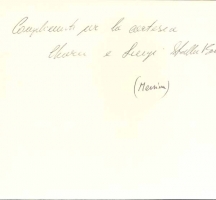 Complimenti per la cortesia
e Luigi Stella
(Messina)